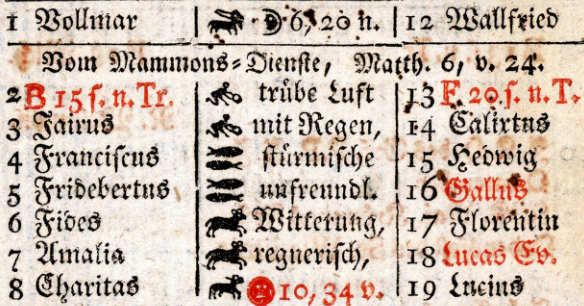 1 Vollmar 6, 20 n. 12 Wallfried
Vom Mammons-Dienste, Matth. 6, v. 24.
2 B 15 s. n. Tr. trübe Luft 13 F 20 s. n. T.
3 Jairus mit Regen, 14 Calixtus
4 Franciscus stürmische 15 Hedwig
5 Fridebertus unfreundl. 16 Gallus
6 Fides Witterung, 17 Florentin
7 Amalia regnerisch, 18 Lucas Ev.
8 Charitas 10, 34 v. 19 Lucius